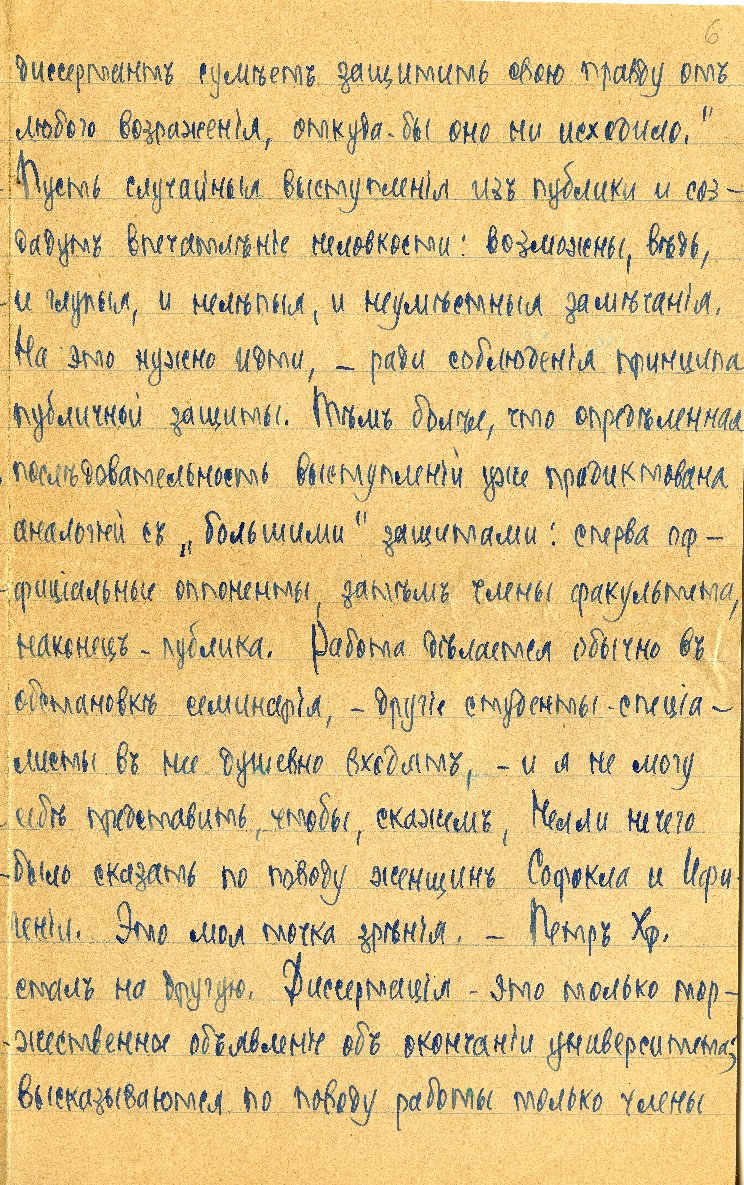 6
диссертантъ сумѣетъ защитить свою правду отъ
любого возраженія, откуда-бы оно ни исходило."
Пусть случайныя выступленія изъ публики и соз-
дадутъ впечатлѣніе неловкости: возможны, вѣдь,
и глупыя, и нелѣпыя, и неумѣстныя замѣчанія.
На это нужно идти, – ради соблюденія принципа
публичной защиты. Тѣмъ болѣе, что опредѣленная
послѣдовательность выступленій уже продиктована
аналогіей съ „большими" защитами: сперва оф-
фиціальные оппоненты, затѣмъ члены факультета,
наконецъ – публика. Работа дѣлается обычно въ
обстановкѣ семинарія, – другіе студенты-спеціа-
листы въ нее душевно входятъ, – и я не могу
себѣ представить, чтобы, скажемъ, Нелли нечего
было сказать по поводу женщинъ Софокла и Ифи-
геніи. Это моя точка зрѣнія. – Петръ Хр.
сталъ на другую. Диссертація – это только тор-
жественное объявленіе объ окончаніи университета;
высказываются по поводу работы только члены